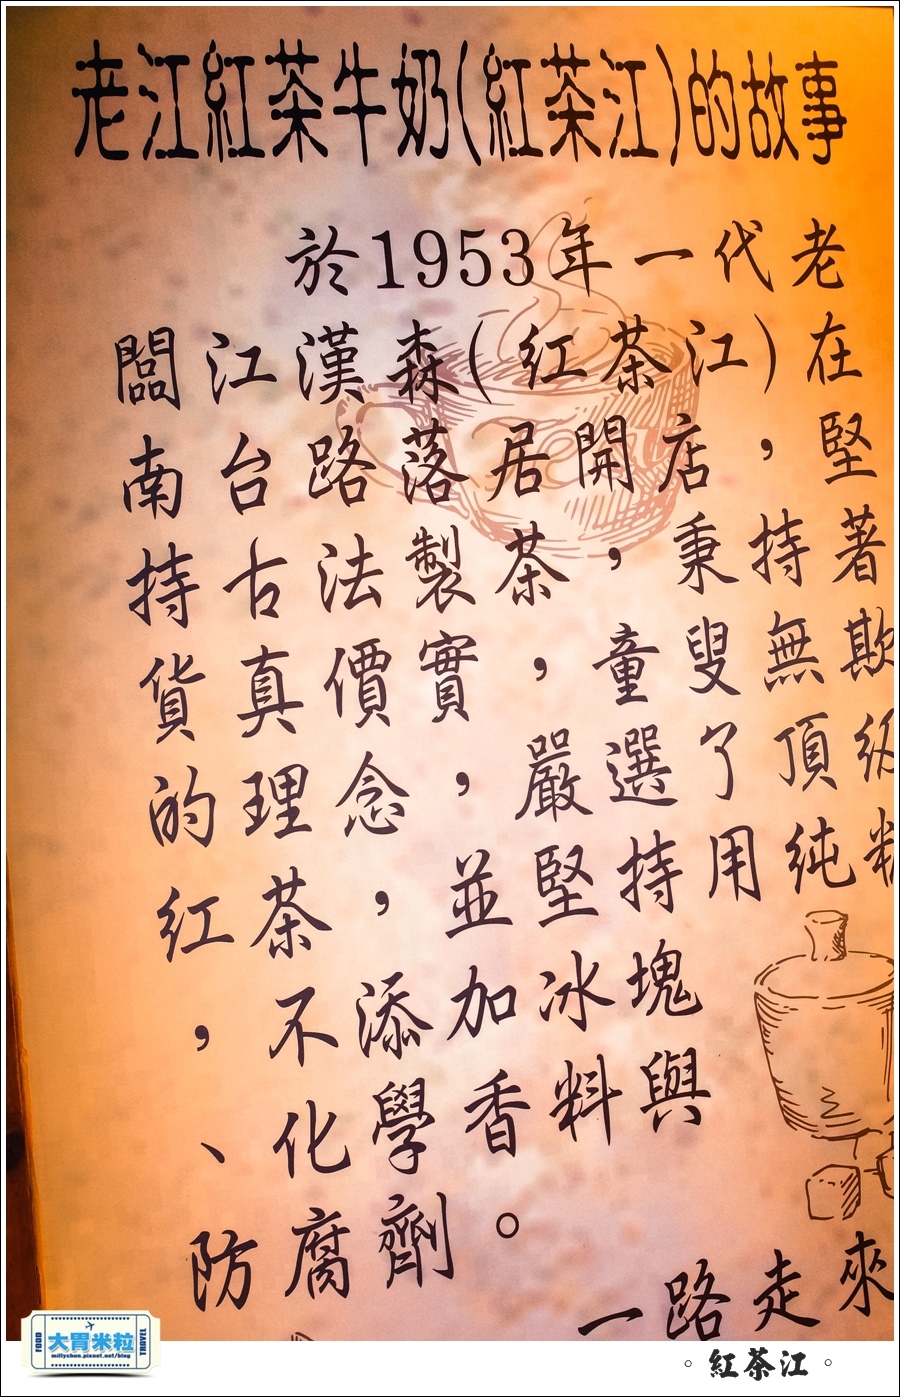 老江紅茶牛奶(紅茶江)的故事
於1953年一代老
闆江漢森(紅茶江)在
南台路落居開店，堅
持古法製茶，秉持著
貨真價實，童叟無欺
的理念，嚴選了頂級
紅茶，並堅持用純
，不添加冰塊
、化學香料與
防腐劑。
一路走來
FOOD
大胃米粒
millychun.pixnet.net/blog
TRAVEL
。紅茶江。